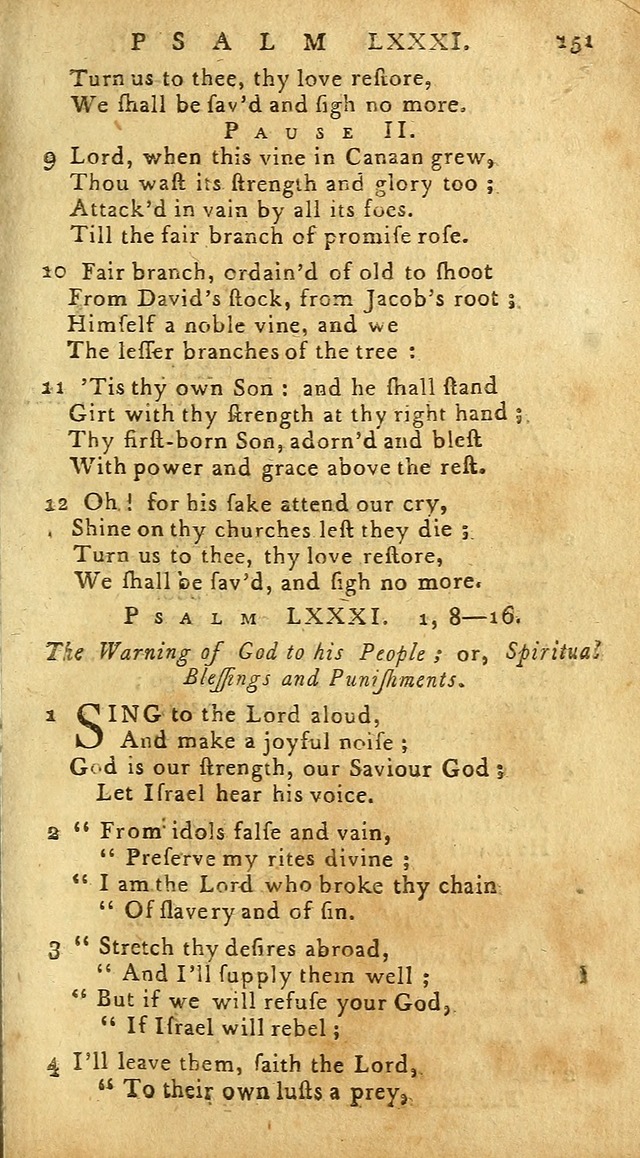 PSALM LXXXI. 151
Turn us to thee, thy love reſtore,
We ſhall be ſav'd and ſigh no more.
PAUSE II.
9 Lord, when this vine in Canaan grew,
Thou waſt its ſtrength and glory too ;
Attack'd in vain by all its foes.
Till the fair branch of promiſe roſe.
10 Fair branch, ordain'd of old to ſhoot
From David's ſtock, from Jacob's root ;
Himſelf a noble vine, and we
The leſſer branches of the tree :
11 'Tis thy own Son : and he ſhall ſtand
Girt with thy ſtrength at thy right hand ;
Thy firſt-born Son, adorn'd and bleſt
With power and grace above the reſt.
12 Oh ! for his ſake attend our cry,
Shine on thy churches left they die ;
Turn us to thee, thy love reſtore,
We ſhall be ſav'd, and ſigh no more.
PSALM LXXXI. 1, 8—16.
The Warning of God to his People ; or, Spiritual
Bleſſings and Puniſhments.
1 SING to the Lord aloud,
And make a joyful noiſe ;
God is our ſtrength, our Saviour God ;
Let Iſrael hear his voice.
2 “ From idols falſe and vain,
“ Preſerve my rites divine ;
“ I am the Lord who broke thy chain
“ Of ſlavery and of ſin.
3 “ Stretch thy deſires abroad,
“ And I'll ſupply them well ;
“ But if we will refuſe your God,
“ If Iſrael will rebel ;
4 I'll leave them, ſaith the Lord,
“ To their own luſts a prey,